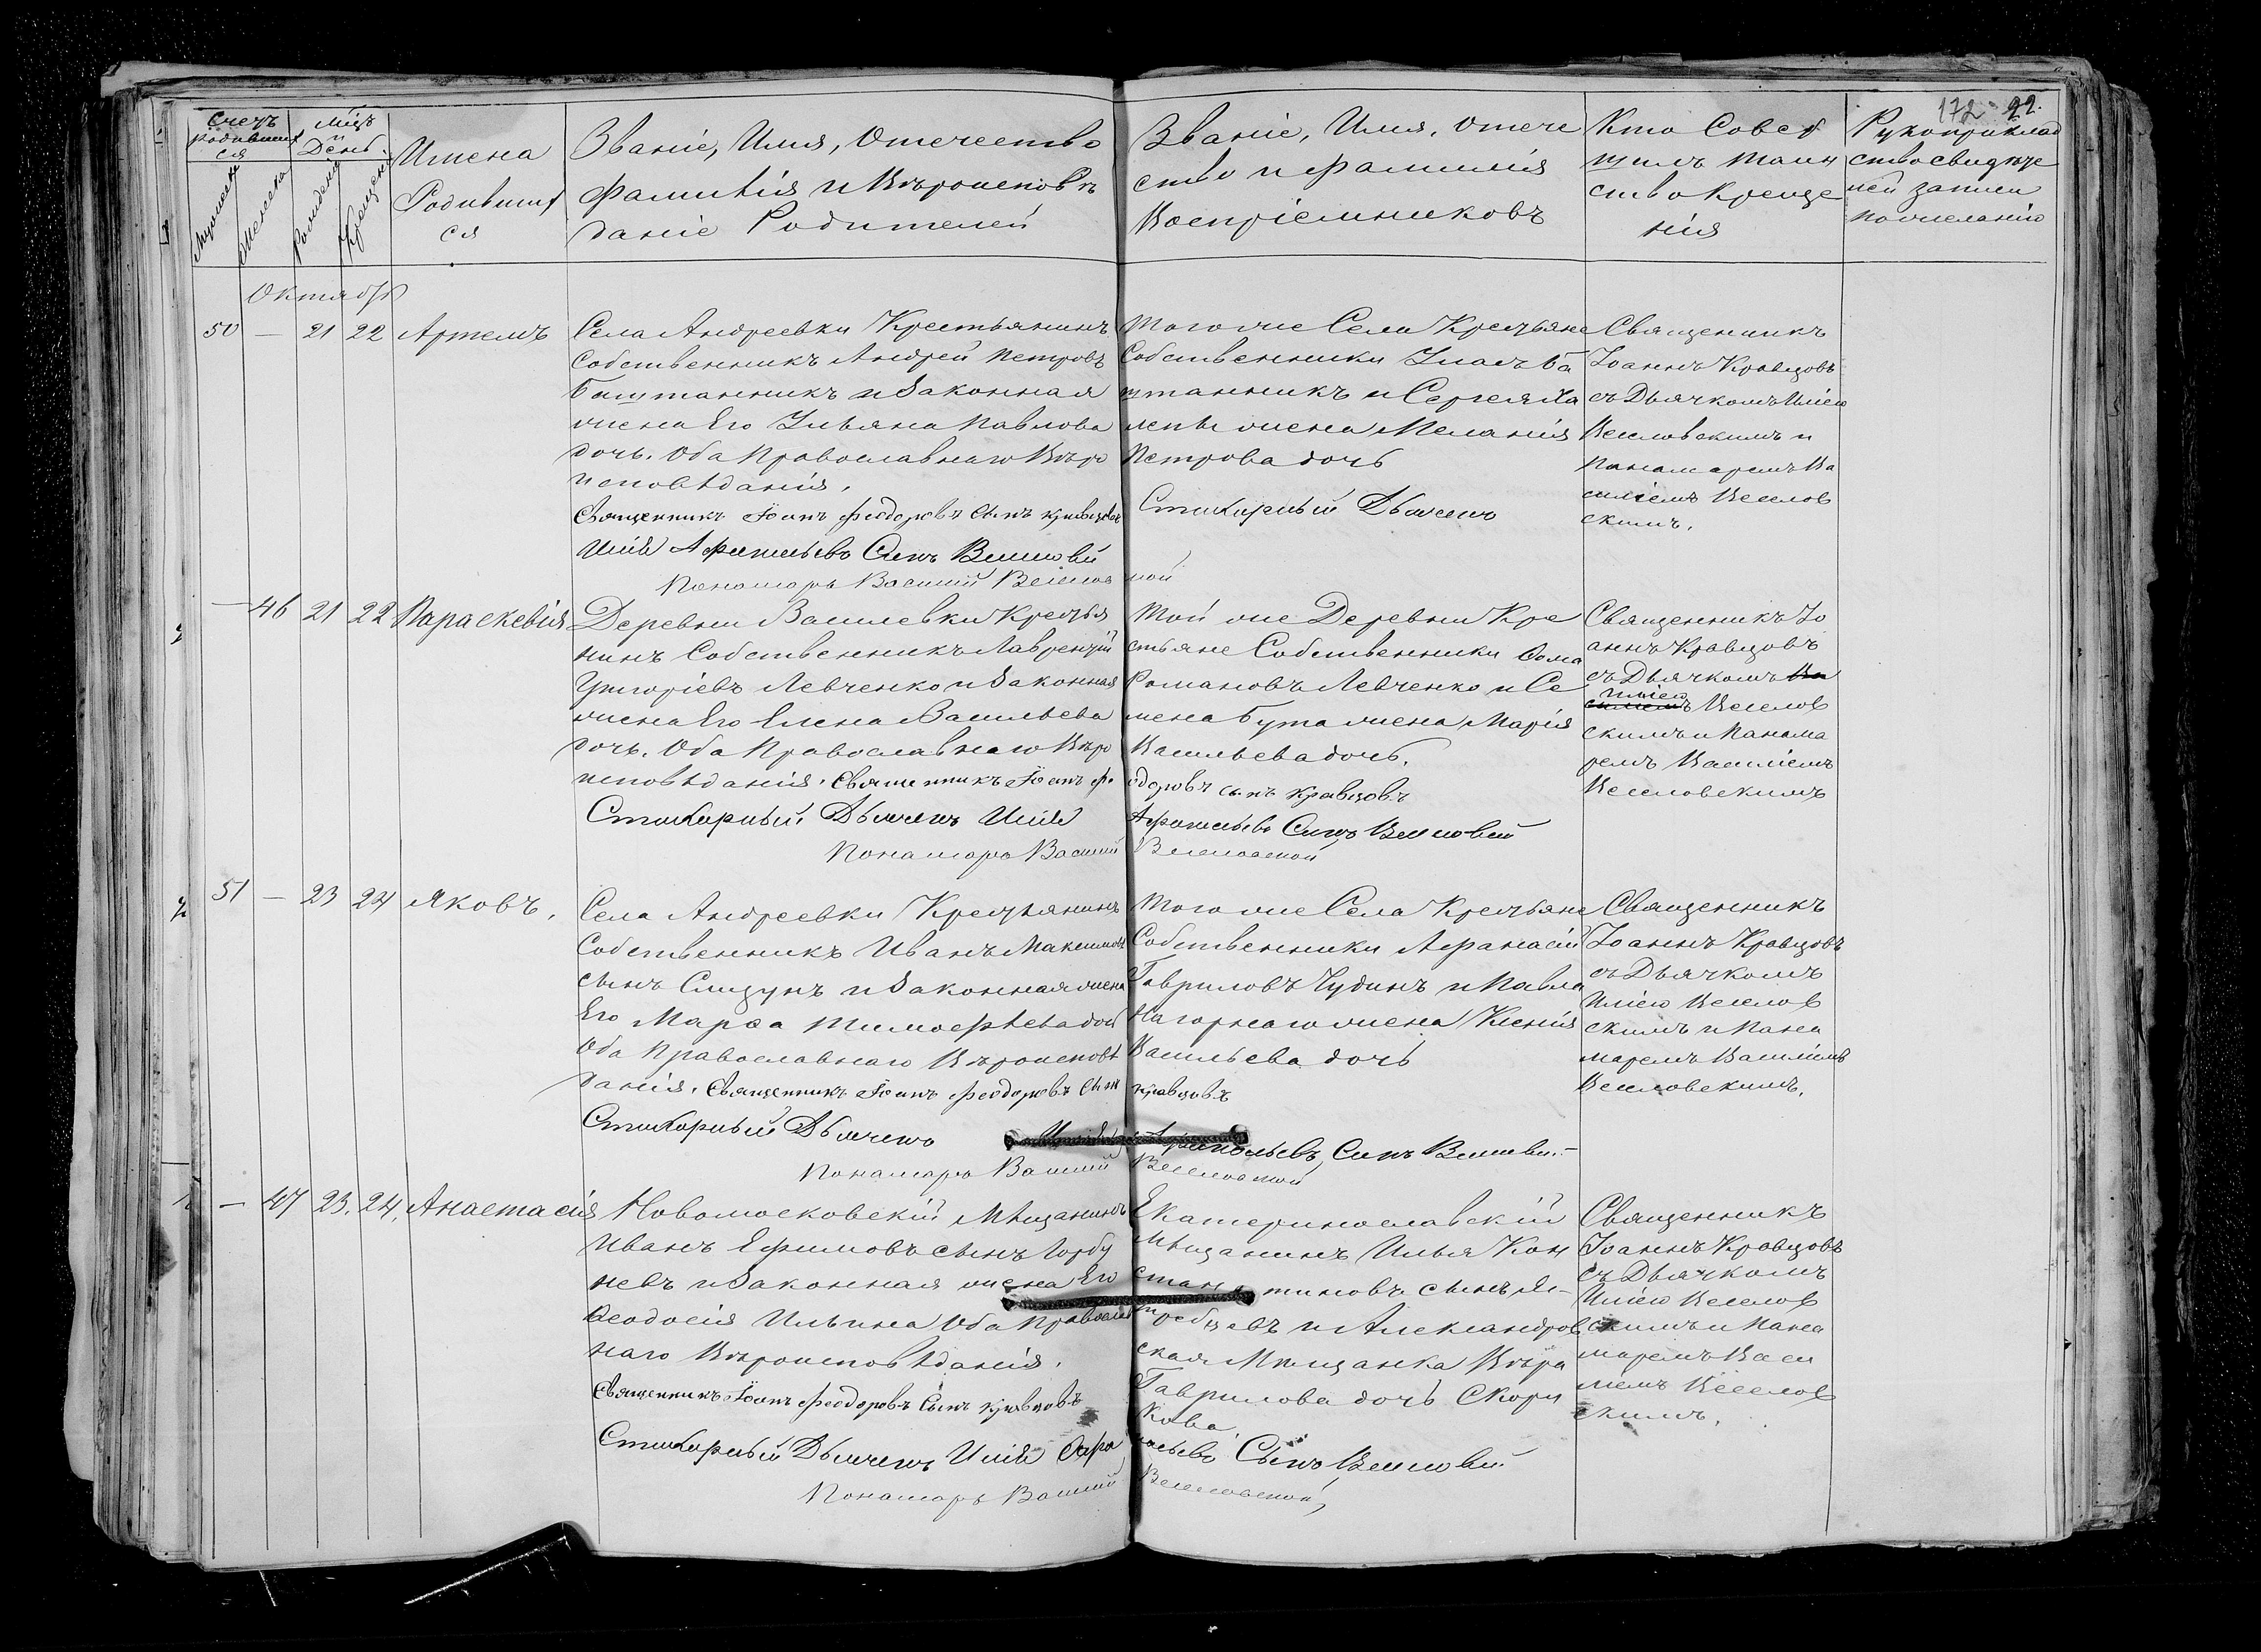 172 92.
Счетъ
родивших
ся
Мужеска
Женска
Мѣцъ
и
День
Рожденія
Крещенія
Имена
Родивших
ся
Званіе, Имя, Отечество
Фамилія и Вѣроисповѣ
даніе Родителей
Званіе, Имя, Отече
ство и фамилія
Воспріемниковъ
Кто Совер
шилъ таин
ство Креще
нія
Рукоприклад
ство свидѣте
лей записи
по желанію
Октябрь
50 — 21 22 Артемъ
Села Андреевки Крестьянинъ
Собственникъ Андрей Петровъ
Баштанникъ и Законная
жена Его Ульяна Павлова
дочь. Оба Православнаго Вѣро
исповѣданія.
Священникъ Іоанъ Феодоровъ Сынъ Кравцовъ
Тогоже Села Крестьяне
Собственники Ба
штанникъ и Сергея Ха
лепы жена Меланія
Петрова дочь
Стихарный Дьячекъ
Илія Афанасьевъ Синъ Веселовскій
Понамарь Василій Веселовской
Священникъ
Іоаннъ Кравцовъ
съ Дьячкомъ Иліею
Веселовскимъ и
Панамаремъ Ва
силіемъ Веселов
скимъ.
— 46 21 22 Параскевія
Деревни Василевки Крестья
нинъ Собственникъ Лаврентій
Григоріевъ Левченко и Законная
жена Его Елена Васильева
дочь. Оба Православнаго Вѣро
исповѣданія. Священникъ Іоанъ Фе
одоровъ сынъ Кравцовъ
Стихарный Дьячекъ Илія
Афанасьевъ Синъ Веселовскій
Понамарь Василій
Веселовской
Той же Деревни Кре
стьяне Собственники Ѳома
Романовъ Левченко и Се
мена Бута жена Марія
Васильева дочь.
Священникъ Іо
аннъ Кравцовъ
съ Дьячкомъ Ва
силіемъ Иліею Веселов
скимъ и Панама
ремъ Василіемъ
Веселовскимъ
51 — 23 24 Яковъ.
Села Андреевки Крестьянинъ
Собственникъ Иванъ Максимовъ
сынъ Слизунъ и Законная жена
Его Марѳа Тимоѳѣева дочь
Оба Православнаго Вѣроисповѣ
данія. Священникъ Іоанъ Феодоровъ Сынъ
Кравцовъ
Стихарный Дьячекъ Илія
Афанасьевъ Синъ Веселовскій
Понамарь Василій
Веселовской
Тогоже Села Крестьяне
Собственники Афанасій
Гавриловъ Чудинъ и Павла
Нагорнаго жена Ксенія
Васильева дочь
Священникъ
Іоаннъ Кравцовъ
съ Дьячкомъ
Иліею Веселов
скимъ и Пана
маремъ Василіемъ
Веселовскимъ.
— 47 23. 24. Анастасія
Новомосковскій Мѣщанинъ
Иванъ Ефимовъ сынъ Горбу
невъ и Законная жена Его
Ѳеодосія Ильина Оба Православ
наго Вѣроисповѣданія.
Священникъ Іоанъ Феодоровъ Сынъ Кравцовъ
Стихарный Дьячекъ Илія Афа
насьевъ Сынъ Веселовскій
Понамарь Василій
Веселовской
Екатеринославскій
Мѣщанинъ Илья Кон
стантиновъ сынъ Я-
требцевъ и Александров
ская Мѣщанка Вѣра
Гаврилова дочь Скори
кова.
Священникъ
Іоаннъ Кравцовъ
съ Дьячкомъ
Иліею Веселов
скимъ и Пана
маремъ Васи
ліемъ Веселов
скимъ.